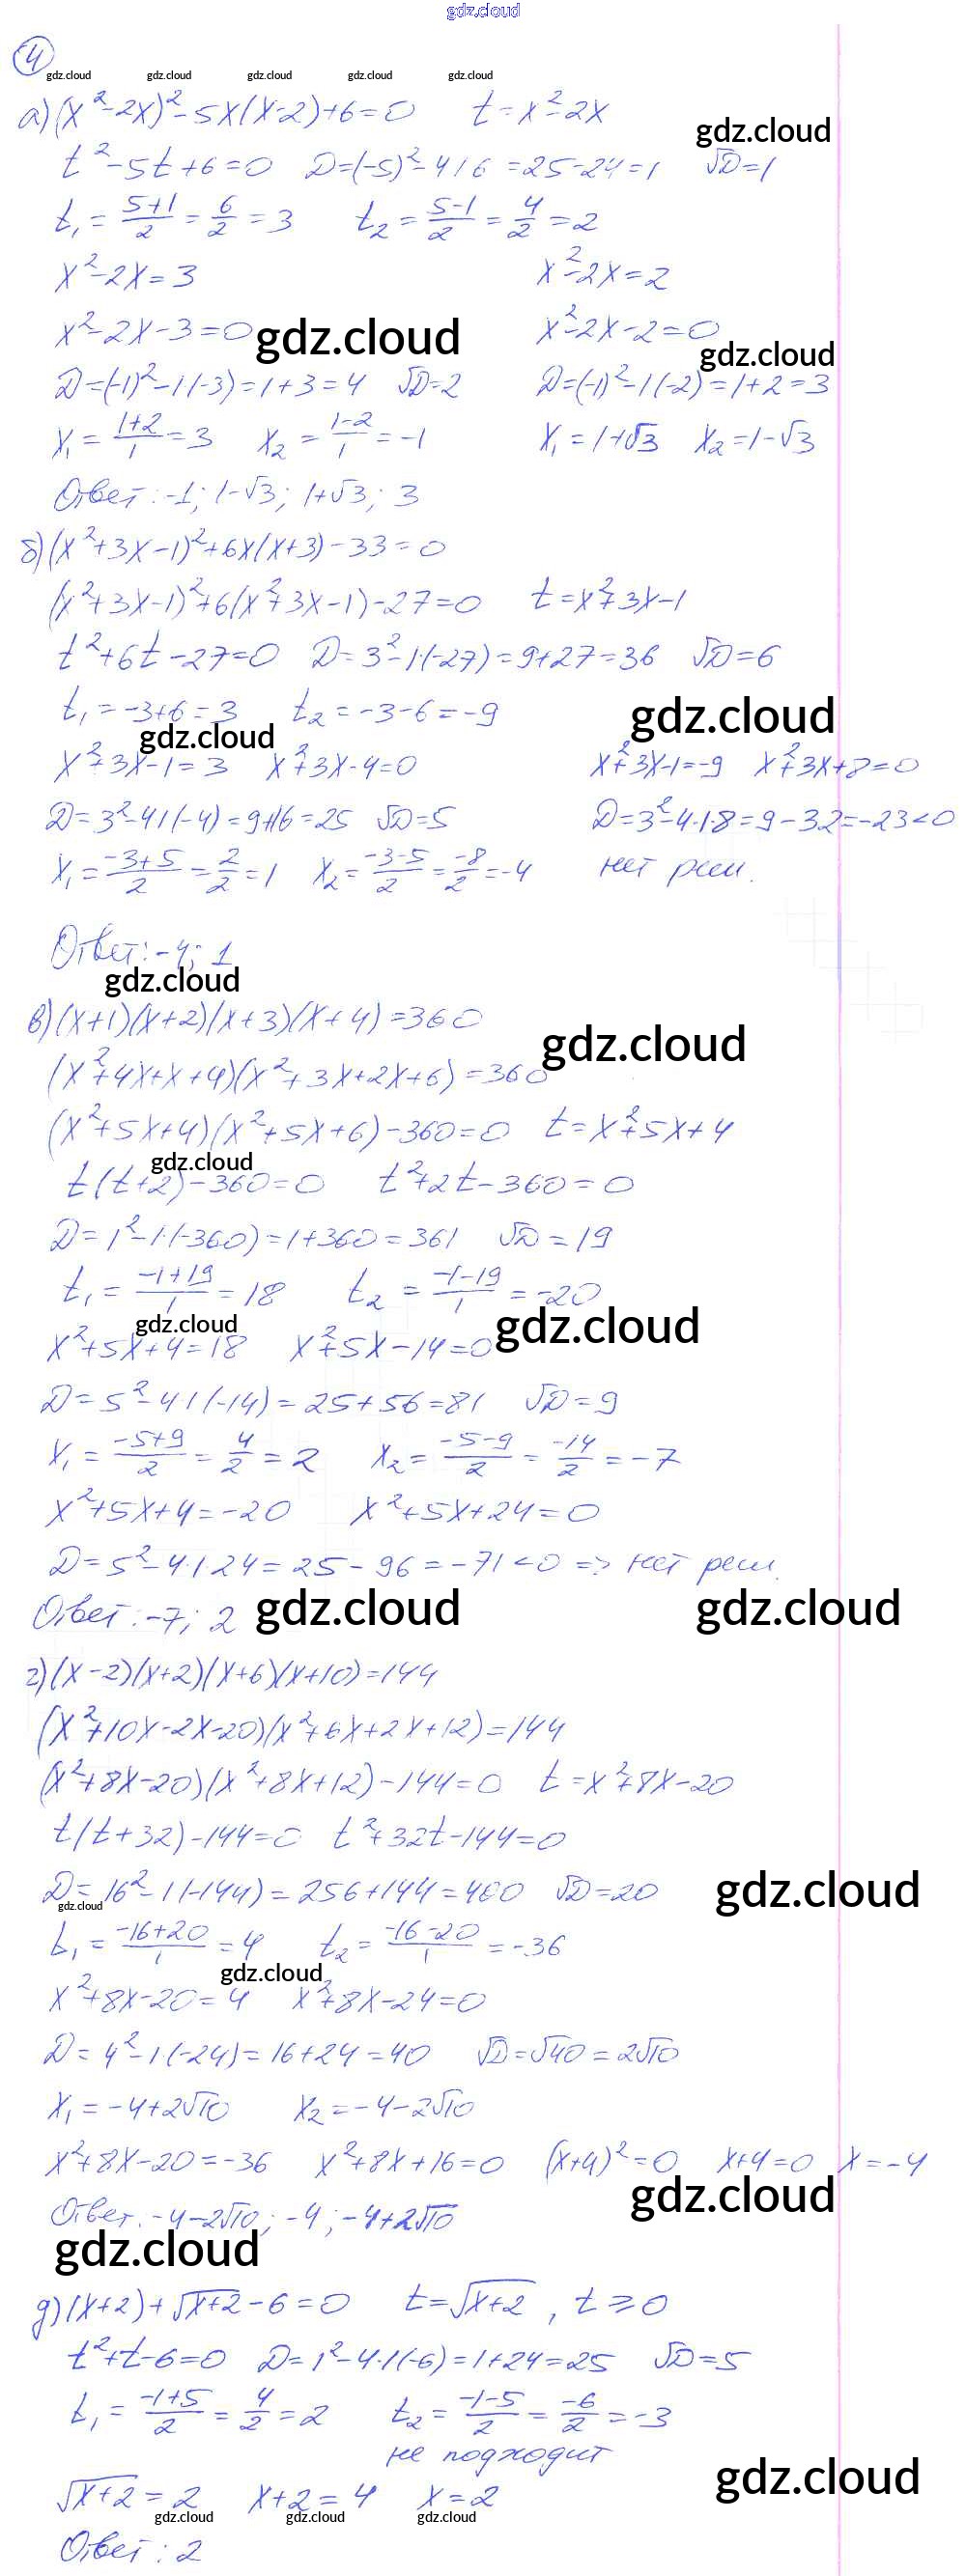 gdz.cloud
4
gdz.cloud gdz.cloud gdz.cloud gdz.cloud gdz.cloud
а) (x²-2x)²-5x(x-2)+6=0 t=x²-2x
gdz.cloud
t²-5t+6=0 D=(-5)²-4·1·6=25-24=1 √D=1
t₁=(5+1)/2=6/2=3 t₂=(5-1)/2=4/2=2
x²-2x=3 x²-2x=2
x²-2x-3=0 gdz.cloud x²-2x-2=0
gdz.cloud
D=(-1)²-1·(-3)=1+3=4 √D=2 D=(-1)²-1·(-2)=1+2=3
x₁=(1+2)/1=3 x₂=(1-2)/1=-1 x₁=1+√3 x₂=1-√3
Ответ: -1; 1-√3; 1+√3; 3
б) (x²+3x-1)²+6x(x+3)-33=0
(x²+3x-1)²+6(x²+3x-1)-27=0 t=x²+3x-1
t²+6t-27=0 D=3²-1·(-27)=9+27=36 √D=6
t₁=-3+6=3 t₂=-3-6=-9 gdz.cloud
gdz.cloud
x²+3x-1=3 x²+3x-4=0 x²+3x-1=-9 x²+3x+8=0
D=3²-4·1·(-4)=9+16=25 √D=5 D=3²-4·1·8=9-32=-23<0
x₁=(-3+5)/2=2/2=1 x₂=(-3-5)/2=-8/2=-4 нет реш.
Ответ: -4; 1
gdz.cloud
в) (x+1)(x+2)(x+3)(x+4)=360
gdz.cloud
(x²+4x+x+4)(x²+3x+2x+6)=360
(x²+5x+4)(x²+5x+6)-360=0 t=x²+5x+4
gdz.cloud
t(t+2)-360=0 t²+2t-360=0
D=1²-1·(-360)=1+360=361 √D=19
t₁=(-1+19)/1=18 t₂=(-1-19)/1=-20
gdz.cloud gdz.cloud
x²+5x+4=18 x²+5x-14=0
D=5²-4·1·(-14)=25+56=81 √D=9
x₁=(-5+9)/2=4/2=2 x₂=(-5-9)/2=-14/2=-7
x²+5x+4=-20 x²+5x+24=0
D=5²-4·1·24=25-96=-71<0 => нет реш.
Ответ: -7; 2 gdz.cloud gdz.cloud
г) (x-2)(x+2)(x+6)(x+10)=144
(x²+10x-2x-20)(x²+6x+2x+12)=144
(x²+8x-20)(x²+8x+12)-144=0 t=x²+8x-20
t(t+32)-144=0 t²+32t-144=0
D=16²-1·(-144)=256+144=400 √D=20 gdz.cloud
gdz.cloud
t₁=(-16+20)/1=4 t₂=(-16-20)/1=-36
gdz.cloud
x²+8x-20=4 x²+8x-24=0
D=4²-1·(-24)=16+24=40 √D=√40=2√10
x₁=-4+2√10 x₂=-4-2√10
x²+8x-20=-36 x²+8x+16=0 (x+4)²=0 x+4=0 x=-4
gdz.cloud
Ответ. -4-2√10; -4; -4+2√10
gdz.cloud
д) (x+2)+√(x+2)-6=0 t=√(x+2), t⩾0
t²+t-6=0 D=1²-4·1·(-6)=1+24=25 √D=5
t₁=(-1+5)/2=4/2=2 t₂=(-1-5)/2=-6/2=-3
не подходит
gdz.cloud
√(x+2)=2 x+2=4 x=2
gdz.cloud gdz.cloud gdz.cloud
Ответ: 2